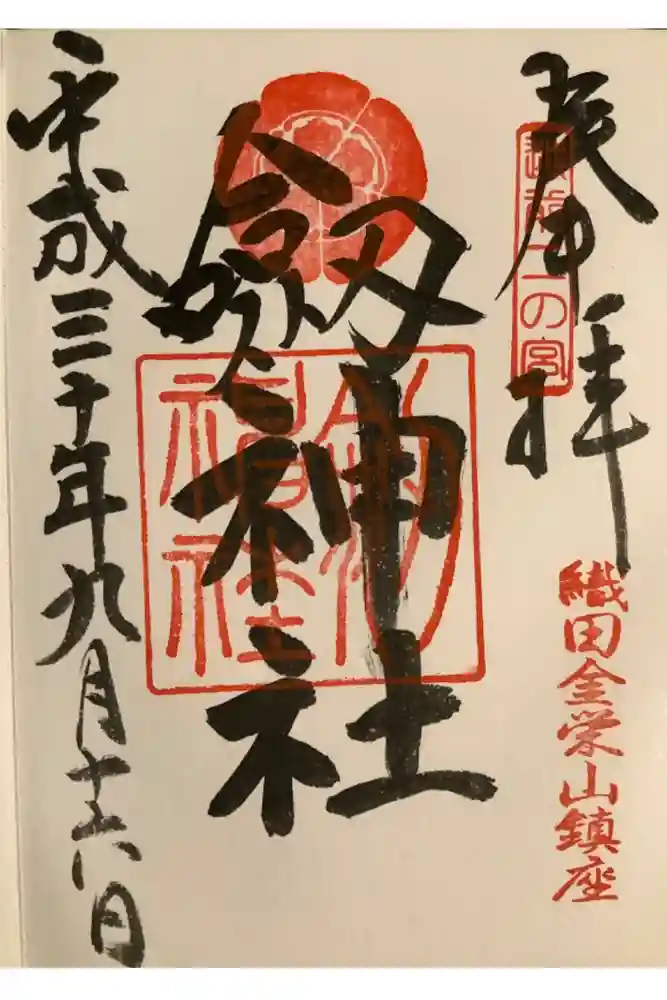 奉拝
越前二の宮
織田金栄山鎮座
劔神社
平成三十年九月十六日